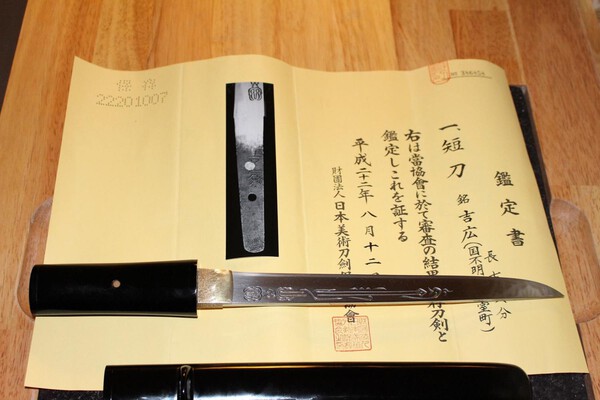 鑑定書
一、短刀 銘 吉広(国不明 室町)
長
分
右は當協會に於て審査の結果
刀剣と
鑑定しこれを証する
平成二十二年八月十二
財團法人日本美術刀劍
協會
保存
22201007